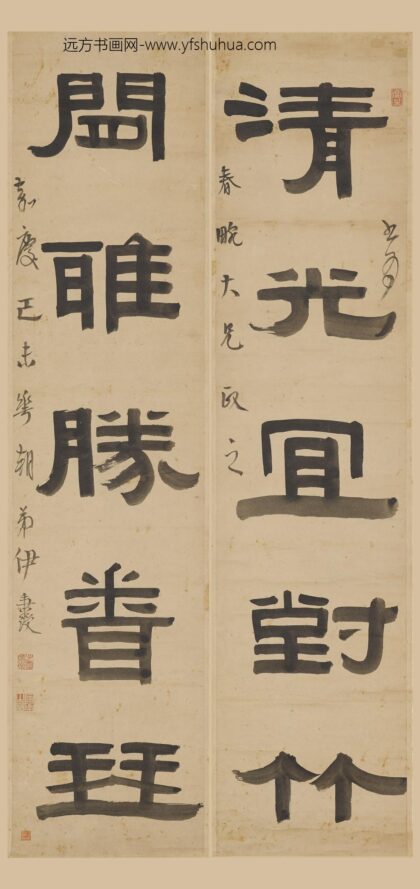 远方书画网-www.yfshuhua.com
清光宜對竹
書為
春畹大兄政之
閒雅勝看琴
嘉慶己未華朝弟伊秉綬